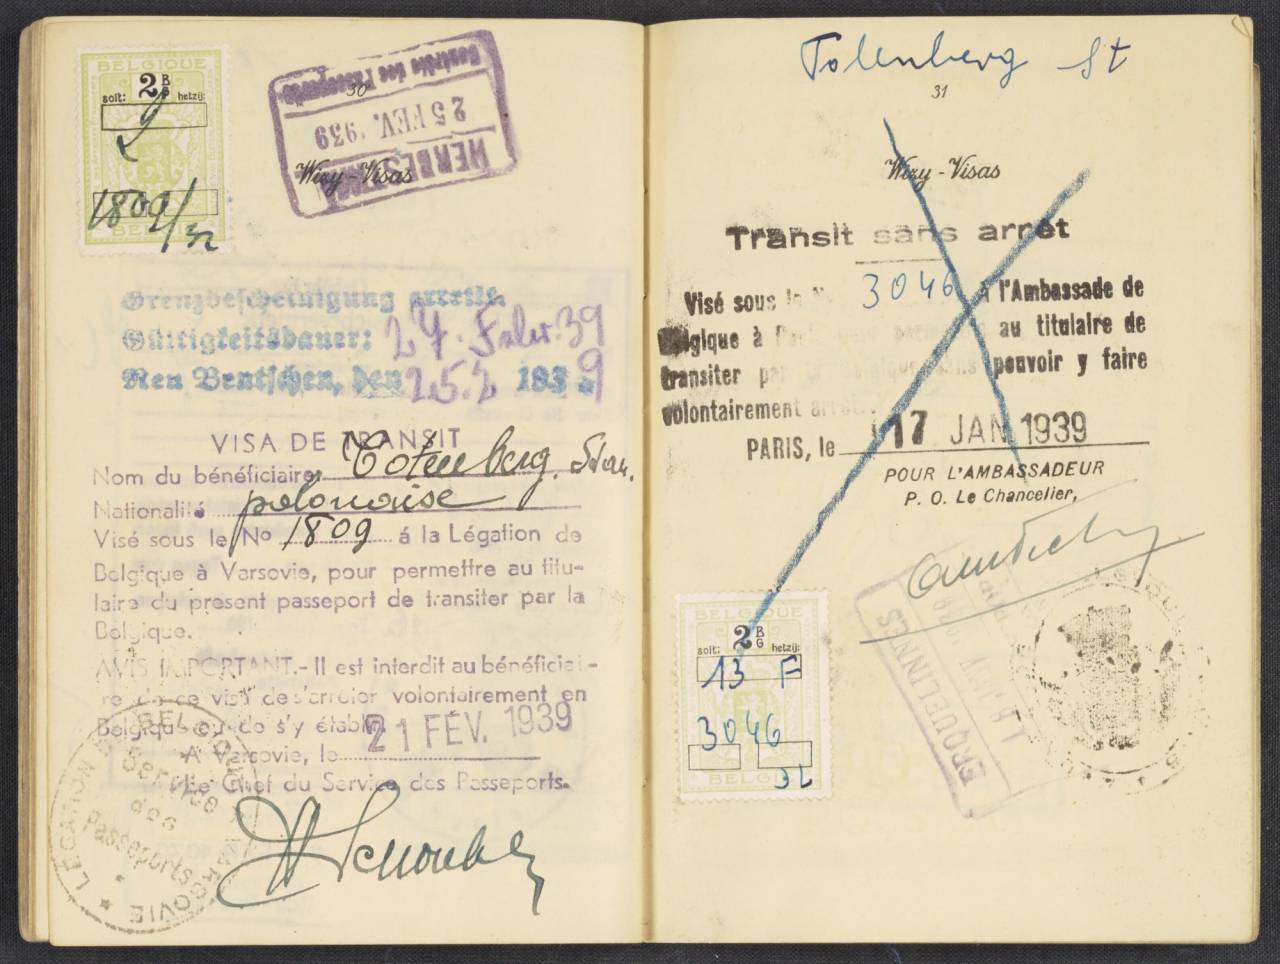 BELGIQUE
2 B
G
soit: hetzij:
2
1809/32
BELGIE
30
Contrôle des Passeports
25 FEV. 1939
HERBESTHAL
Wizy - Visas
Grenzbescheinigung erteilt.
Gültigkeitsdauer: 27. Febr. 39
Neu Bentschen, den 25.2 1939
VISA DE TRANSIT
Nom du bénéficiaire Totenberg, Stan.
Nationalité polonaise
Visé sous le No 1809 á la Légation de
Belgique à Varsovie, pour permettre au titu-
laire du present passeport de transiter par la
Belgique.
AVIS IMPORTANT.- Il est interdit au bénéficiai-
re de ce visa de s'arrêter volontairement en
Belgique ou de s'y établir
21 FÉV. 1939
A Varsovie, le
Le Chef du Service des Passeports.
LEGATION BELGIQUE
VARSOVIE
Service
des
Passeports
Totenberg St
31
Wizy - Visas
Transit sans arrêt
Visé sous le No. 3046 à l'Ambassade de
Belgique à Paris au titulaire de
transiter par la Belgique sans pouvoir y faire
volontairement arrêt.
PARIS, le 17 JAN 1939
POUR L'AMBASSADEUR
P. O. Le Chancelier,
ERQUELINNES
BELGIQUE
2 B
G
soit: hetzij:
13 F
3046
32
BELGIE